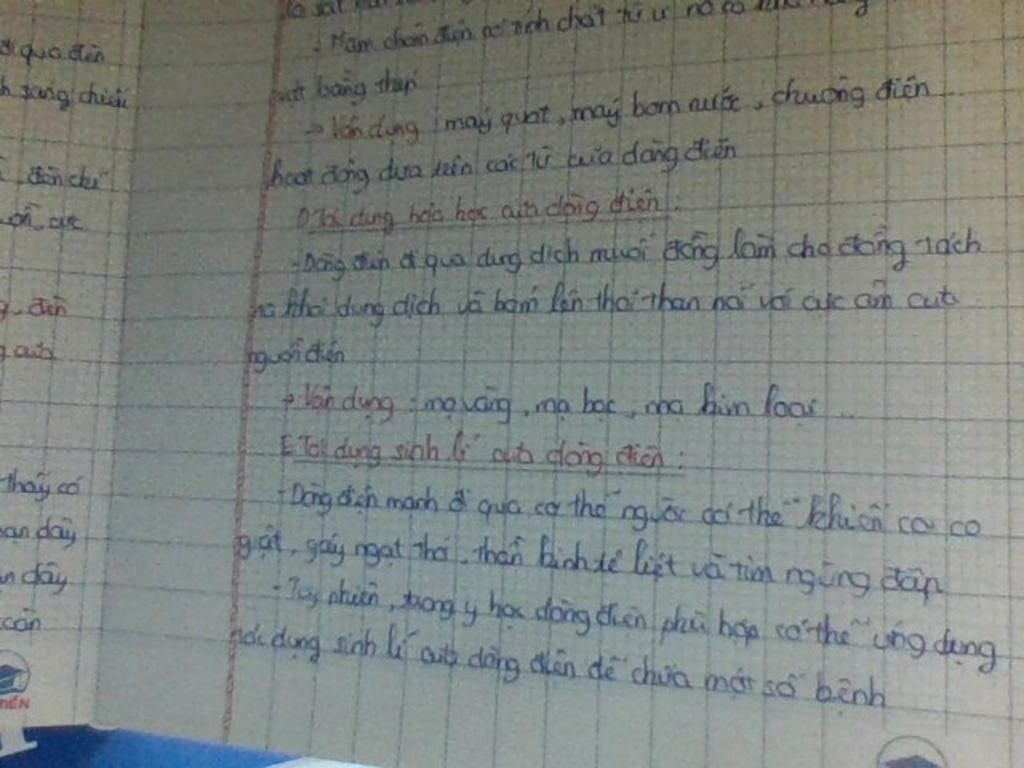 - Nam châm điện có tính chất từ vì nó có
bằng thép
→ Vận dụng : máy quạt, máy bơm nước, chuông điện
hoạt động dựa trên các từ của dòng điện
D Tác dụng hóa học của dòng điện :
- Dòng điện đi qua dung dịch muối đồng làm cho đồng tách
ra khỏi dung dịch và bám lên thỏi than nối với cực âm của
nguồn điện
→ Vận dụng : mạ vàng, mạ bạc, mạ kim loại ...
E Tác dụng sinh lí của dòng điện :
- Dòng điện mạnh đi qua cơ thể người có thể khiến cơ co
giật, gây ngạt thở, thần kinh tê liệt và tim ngừng đập
- Tuy nhiên, trong y học dòng điện phù hợp có thể ứng dụng
tác dụng sinh lí của dòng điện để chữa một số bệnh
đi qua đèn
sáng chiều
đèn chỉ
điện
của
thấy có
dây
dây